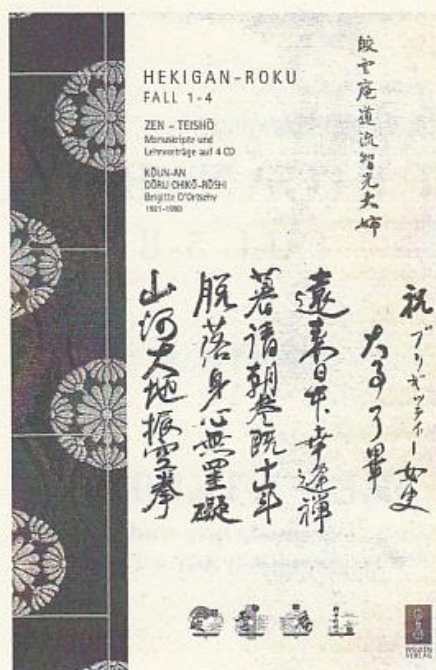 HEKIGAN-ROKU
FALL 1-4
ZEN - TEISHŌ
Manuskripte und
Lehrvorträge auf 4 CD
KŌUN-AN
DŌRU CHIKŌ-RŌSHI
Brigitte D'Ortschy
1921-1990
皎雲庵道流智光大姉
祝ブリギッティー女史
大事了畢
遠来日本幸逢禅
暮請朝参既十年
脱落身心無罣礙
山河大地振空拳
VERLAG